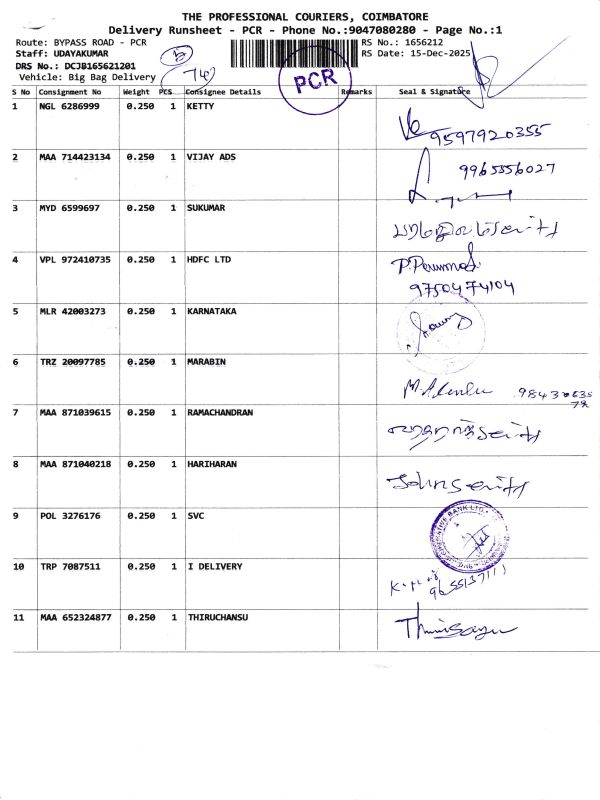 THE PROFESSIONAL COURIERS, COIMBATORE
Delivery Runsheet - PCR - Phone No.:9047080280 - Page No.:1
Route: BYPASS ROAD - PCR
Staff: UDAYAKUMAR
DRS No.: DCJB165621201
Vehicle: Big Bag Delivery
RS No.: 1656212
RS Date: 15-Dec-2025
PCR
S No Consignment No Weight PCS Consignee Details Remarks Seal & Signature
1 NGL 6286999 0.250 1 KETTY
9597920355
2 MAA 714423134 0.250 1 VIJAY ADS 9965556027
3 MYD 6599697 0.250 1 SUKUMAR
4 VPL 972410735 0.250 1 HDFC LTD P.Perumal
9750474104
5 MLR 42003273 0.250 1 KARNATAKA
6 TRZ 20097785 0.250 1 MARABIN
7 MAA 871039615 0.250 1 RAMACHANDRAN
8 MAA 871040218 0.250 1 HARIHARAN
9 POL 3276176 0.250 1 SVC
BANK LTD.
10 TRP 7087511 0.250 1 I DELIVERY
11 MAA 652324877 0.250 1 THIRUCHANSU